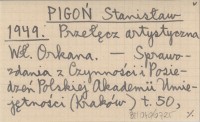 PIGOŃ Stanisław
1949. Przełęcz artystyczna
Wł. Orkana. — Sprawo-
zdania z Czynności i Posie-
dzeń Polskiej Akademii Umie-
jętności (Kraków) t. 50,